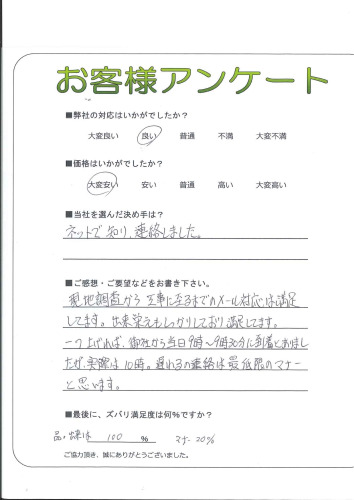 お客様アンケート
■弊社の対応はいかがでしたか?
大変良い 良い 普通 不満 大変不満
■価格はいかがでしたか?
大変安い 安い 普通 高い 大変高い
■当社を選んだ決め手は?
ネットで知り、連絡しました。
■ご感想・ご要望などをお書き下さい。
現地調査から工事に至るまでのメール対応は満足
してます。出来栄えもしっかりしており満足してます。
一つ上げれば、御社から当日9時〜9時30分に到着とありまし
たが、実際は10時。遅れるの連絡は最低限のマナー
と思います。
■最後に、ズバリ満足度は何%ですか?
100 % マナー 20%
ご協力頂き、誠にありがとうございました。